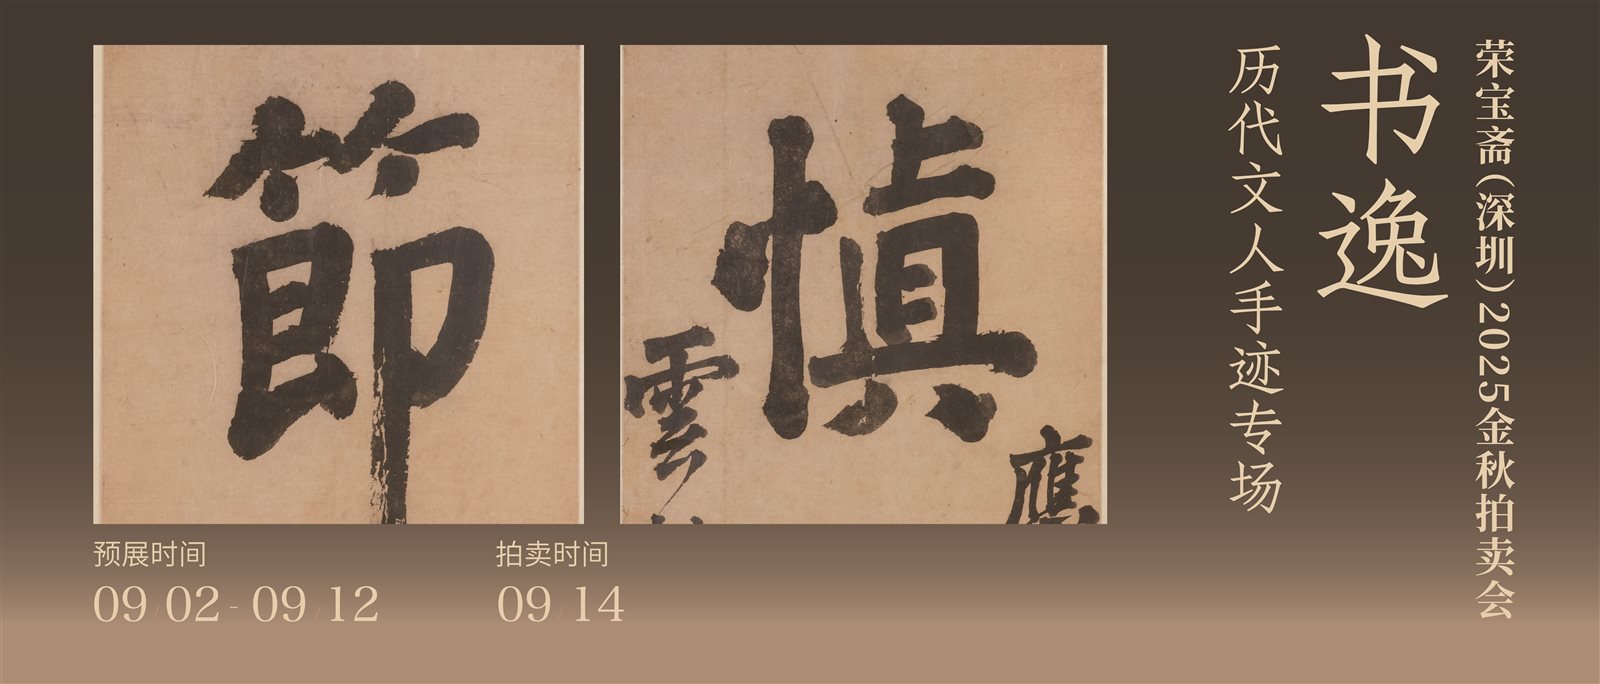 荣宝斋(深圳)2025金秋拍卖会
书逸
历代文人手迹专场
慎
應
雲
節
预展时间
09/02-09/12
拍卖时间
09/14